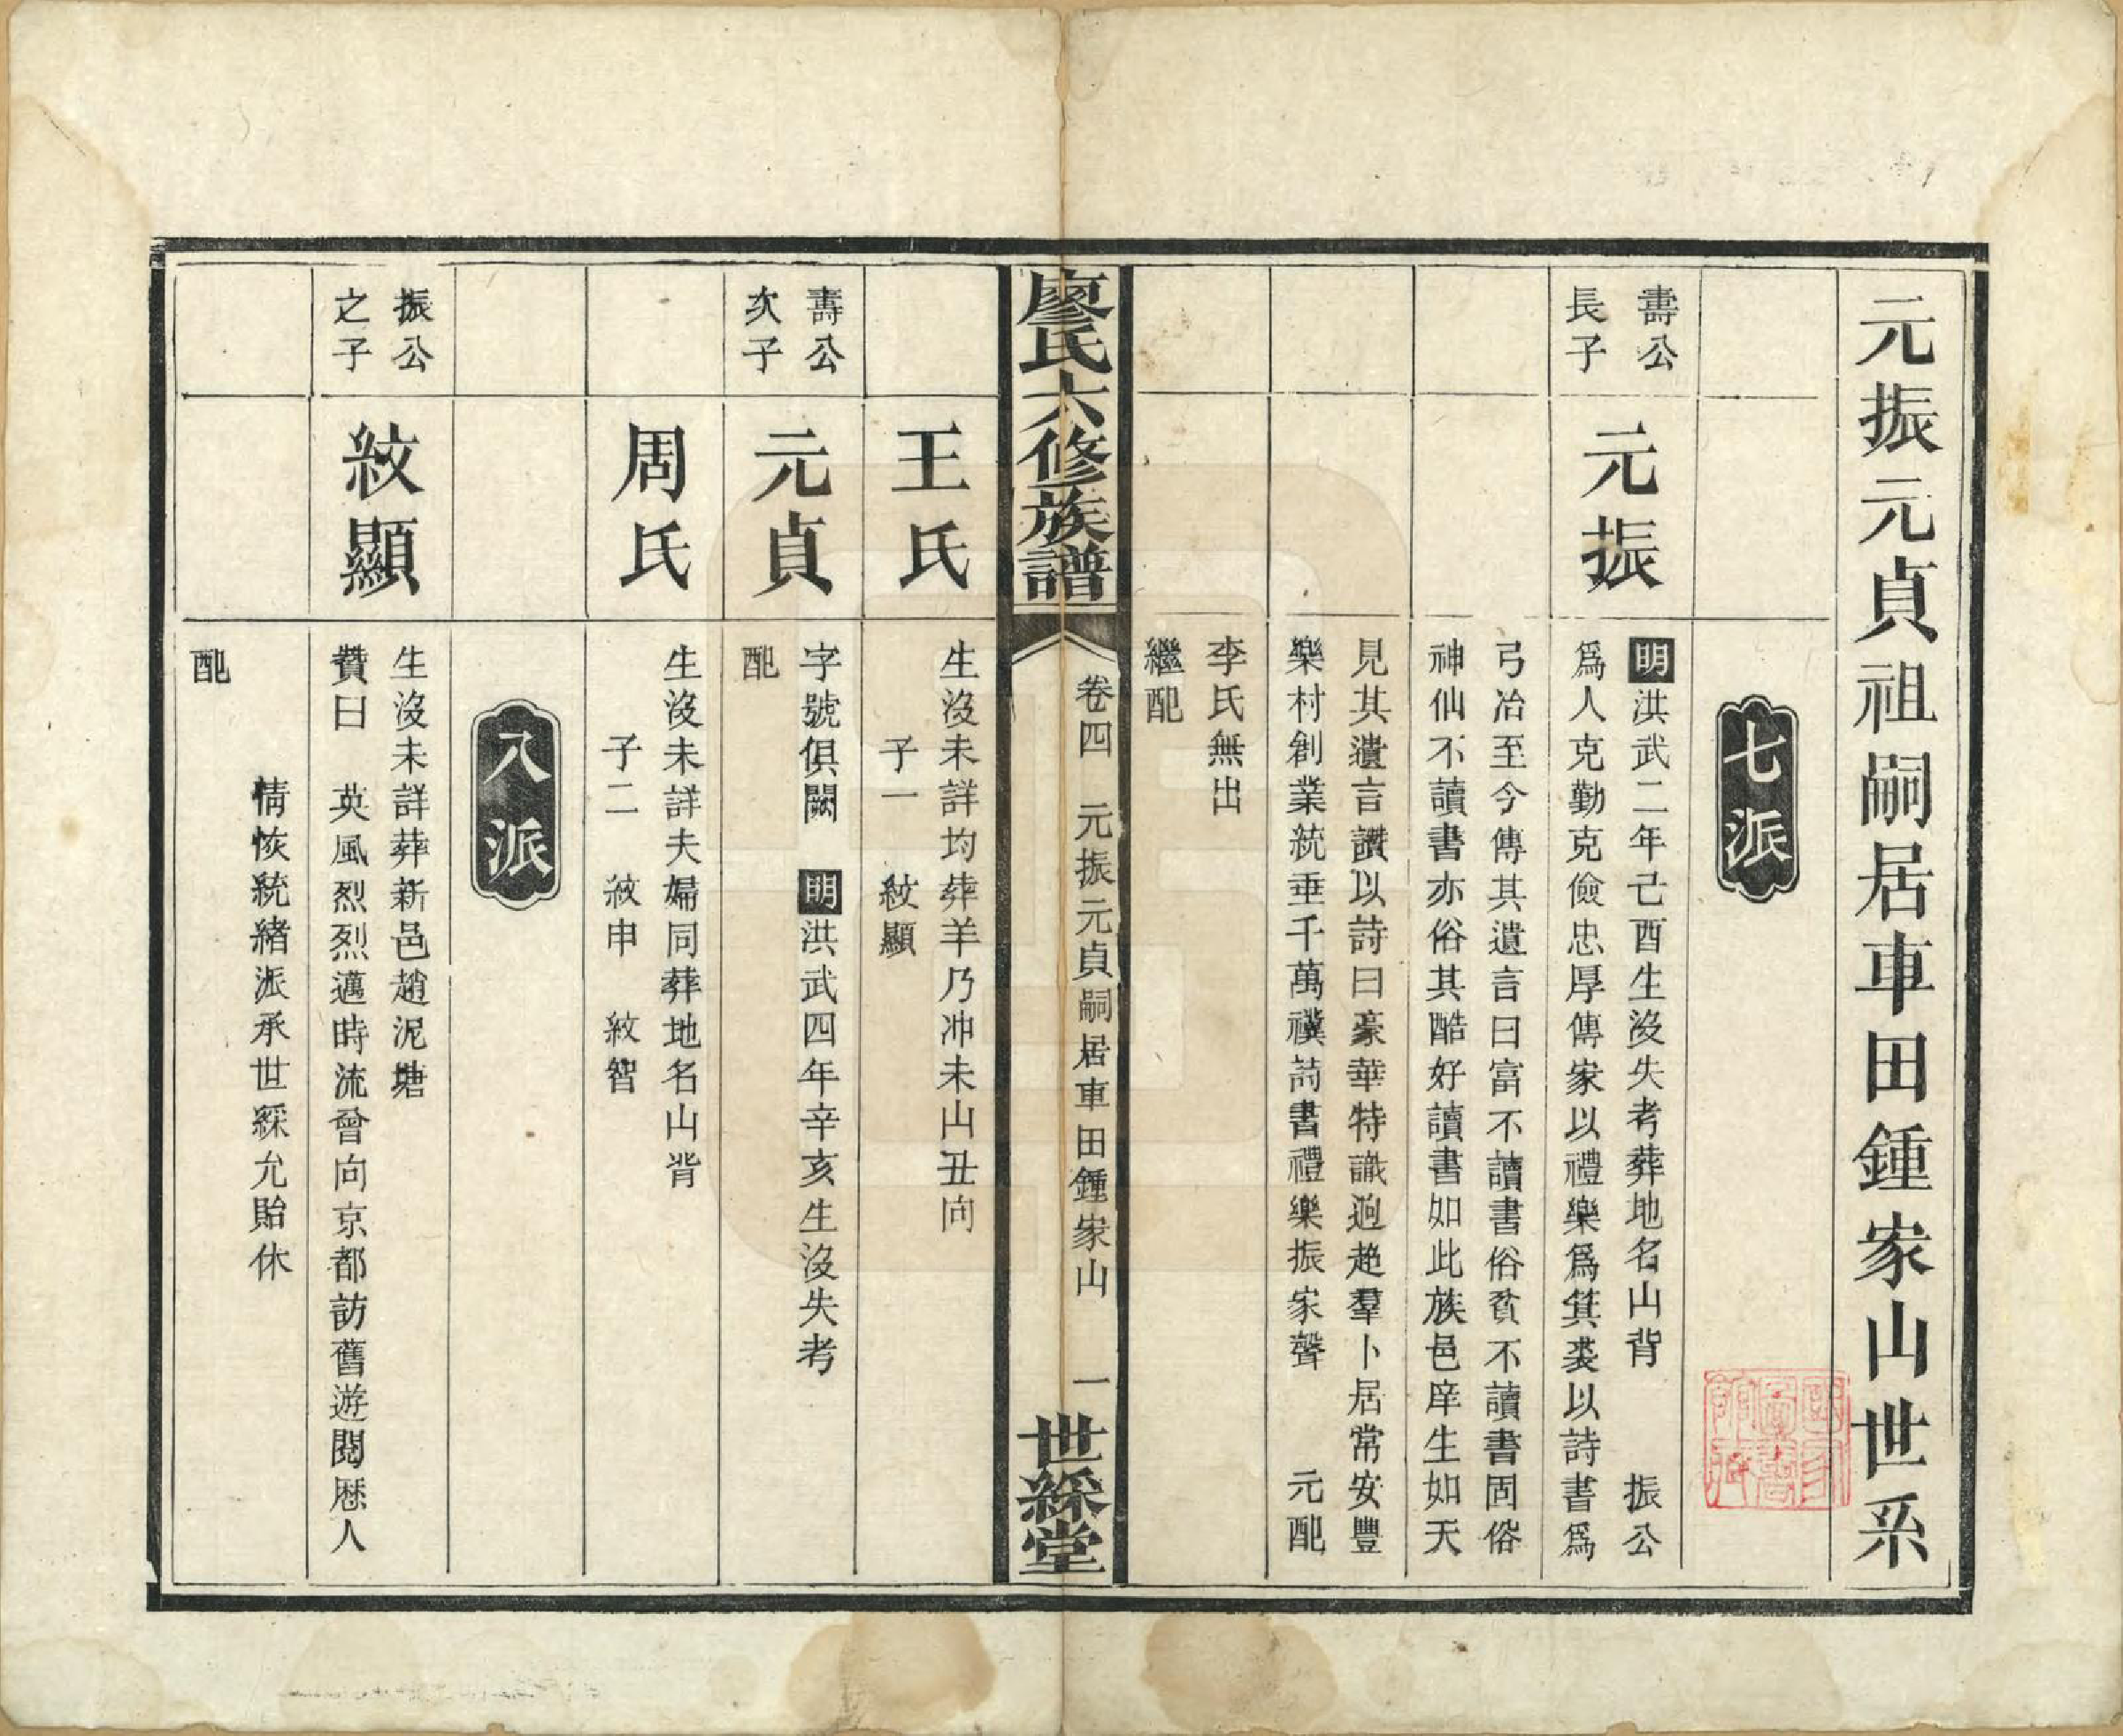 元振元貞祖嗣居車田鍾家山世系
七派
壽公
長子
元振
明洪武二年己酉生沒失考葬地名山背　振公
爲人克勤克儉忠厚傳家以禮樂爲箕裘以詩書爲
弓冶至今傳其遺言曰富不讀書俗貧不讀書固俗
神仙不讀書亦俗其酷好讀書如此族邑庠生如天
見其遺言讚以詩曰豪華特識迥超羣卜居常安豐
樂村創業統垂千萬禩詩書禮樂振家聲　元配
李氏無出
繼配
廖氏六修族譜
卷四　元振元貞嗣居車田鍾家山　一
世綵堂
王氏
生沒未詳均葬羊乃冲未山丑向
子一　紋顯
壽公
次子
元貞
字號俱闕　明洪武四年辛亥生沒失考
配
周氏
生沒未詳夫婦同葬地名山背
子二　紋申　紋智
八派
振公
之子
紋顯
生沒未詳葬新邑趙泥塘
贊曰　英風烈烈邁時流曾向京都訪舊遊閱歷人
情恢統緒派承世綵允貽休
配